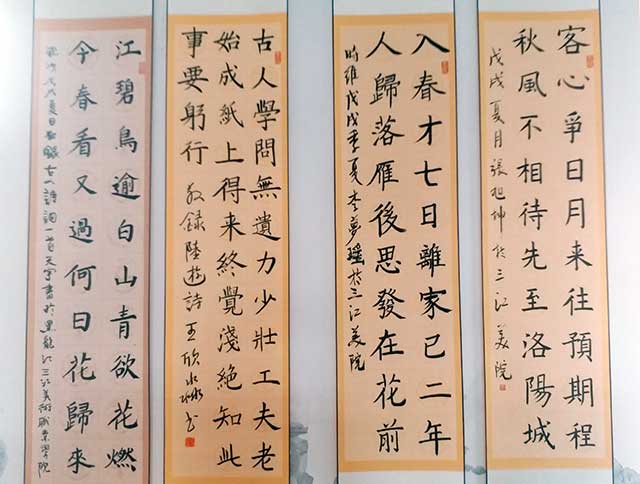 客心爭日月来往預期程
秋風不相待先至洛陽城
戊戌夏月張旭坤於三江美院
入春才七日離家已二年
人歸落雁後思發在花前
時維戊戌季夏李夢瑶於三江美院
古人學問無遺力少壯工夫老
始成紙上得来終覺淺絶知此
事要躬行 敬録陸遊詩王欣
江碧鳥逾白山青欲花燃
今春看又過何日花歸來
戊戌夏日敬録古人詩詞一首天宇書於黑龍江三江美術職業學院